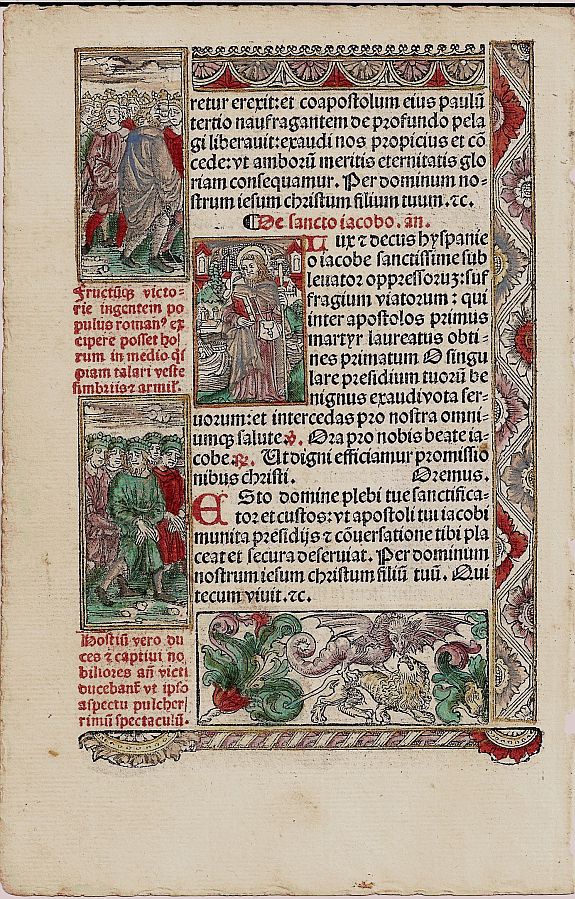 retur erexit:et coapostolum eius paulū
tertio naufragantem de profundo pela
gi liberauit:exaudi nos propicius et cō
cede:vt amborū meritis eternitatis glo
riam consequamur. Per dominum no-
strum iesum christum filium tuum. ⁊c.
De sancto iacobo. añ.
Lux ⁊ decus hyspanie
o iacobe sanctissime sub
leuator oppressoruꝫ:suf
fragium viatorum: qui
inter apostolos primus
martyr laureatus obti-
nes primatum O singu
lare presidium tuorū be
nignus exaudi vota ser-
uorum:et intercedas pro nostra omni-
umqꝫ salute. ℣. Ora pro nobis beate ia-
cobe. ℟. Ut digni efficiamur promissio
nibus christi. Oremus.
Esto domine plebi tue sanctifica-
tor et custos:vt apostoli tui iacobi
munita presidijs ⁊ cōuersatione tibi pla
ceat et secura deseruiat. Per dominum
nostrum iesum christum filiū tuū. Qui
tecum viuit. ⁊c.
Fructūqꝫ victo-
rie ingentem po
pulus romanꝰ ex
cipere posset ho/
rum in medio qs
piam talari veste
fimbriis ⁊ armil.
Hostiū vero du
ces ⁊ captiui no
biliores añ victi
ducebant vt ipso
aspectu pulcher/
rimū spectaculū.